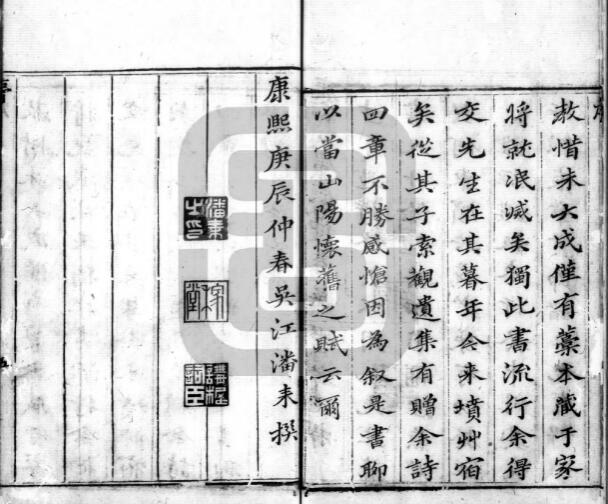 惜未大成僅有藁本藏于家
將就泯滅矣獨此書流行余得
交先生在其暮年今来墳艸宿
矣從其子索觀遺集有贈余詩
四章不勝感愴因為叙是書聊
以當山陽懷舊之賦云爾
康熙庚辰仲春吳江潘耒撰
潘耒之印
稼堂